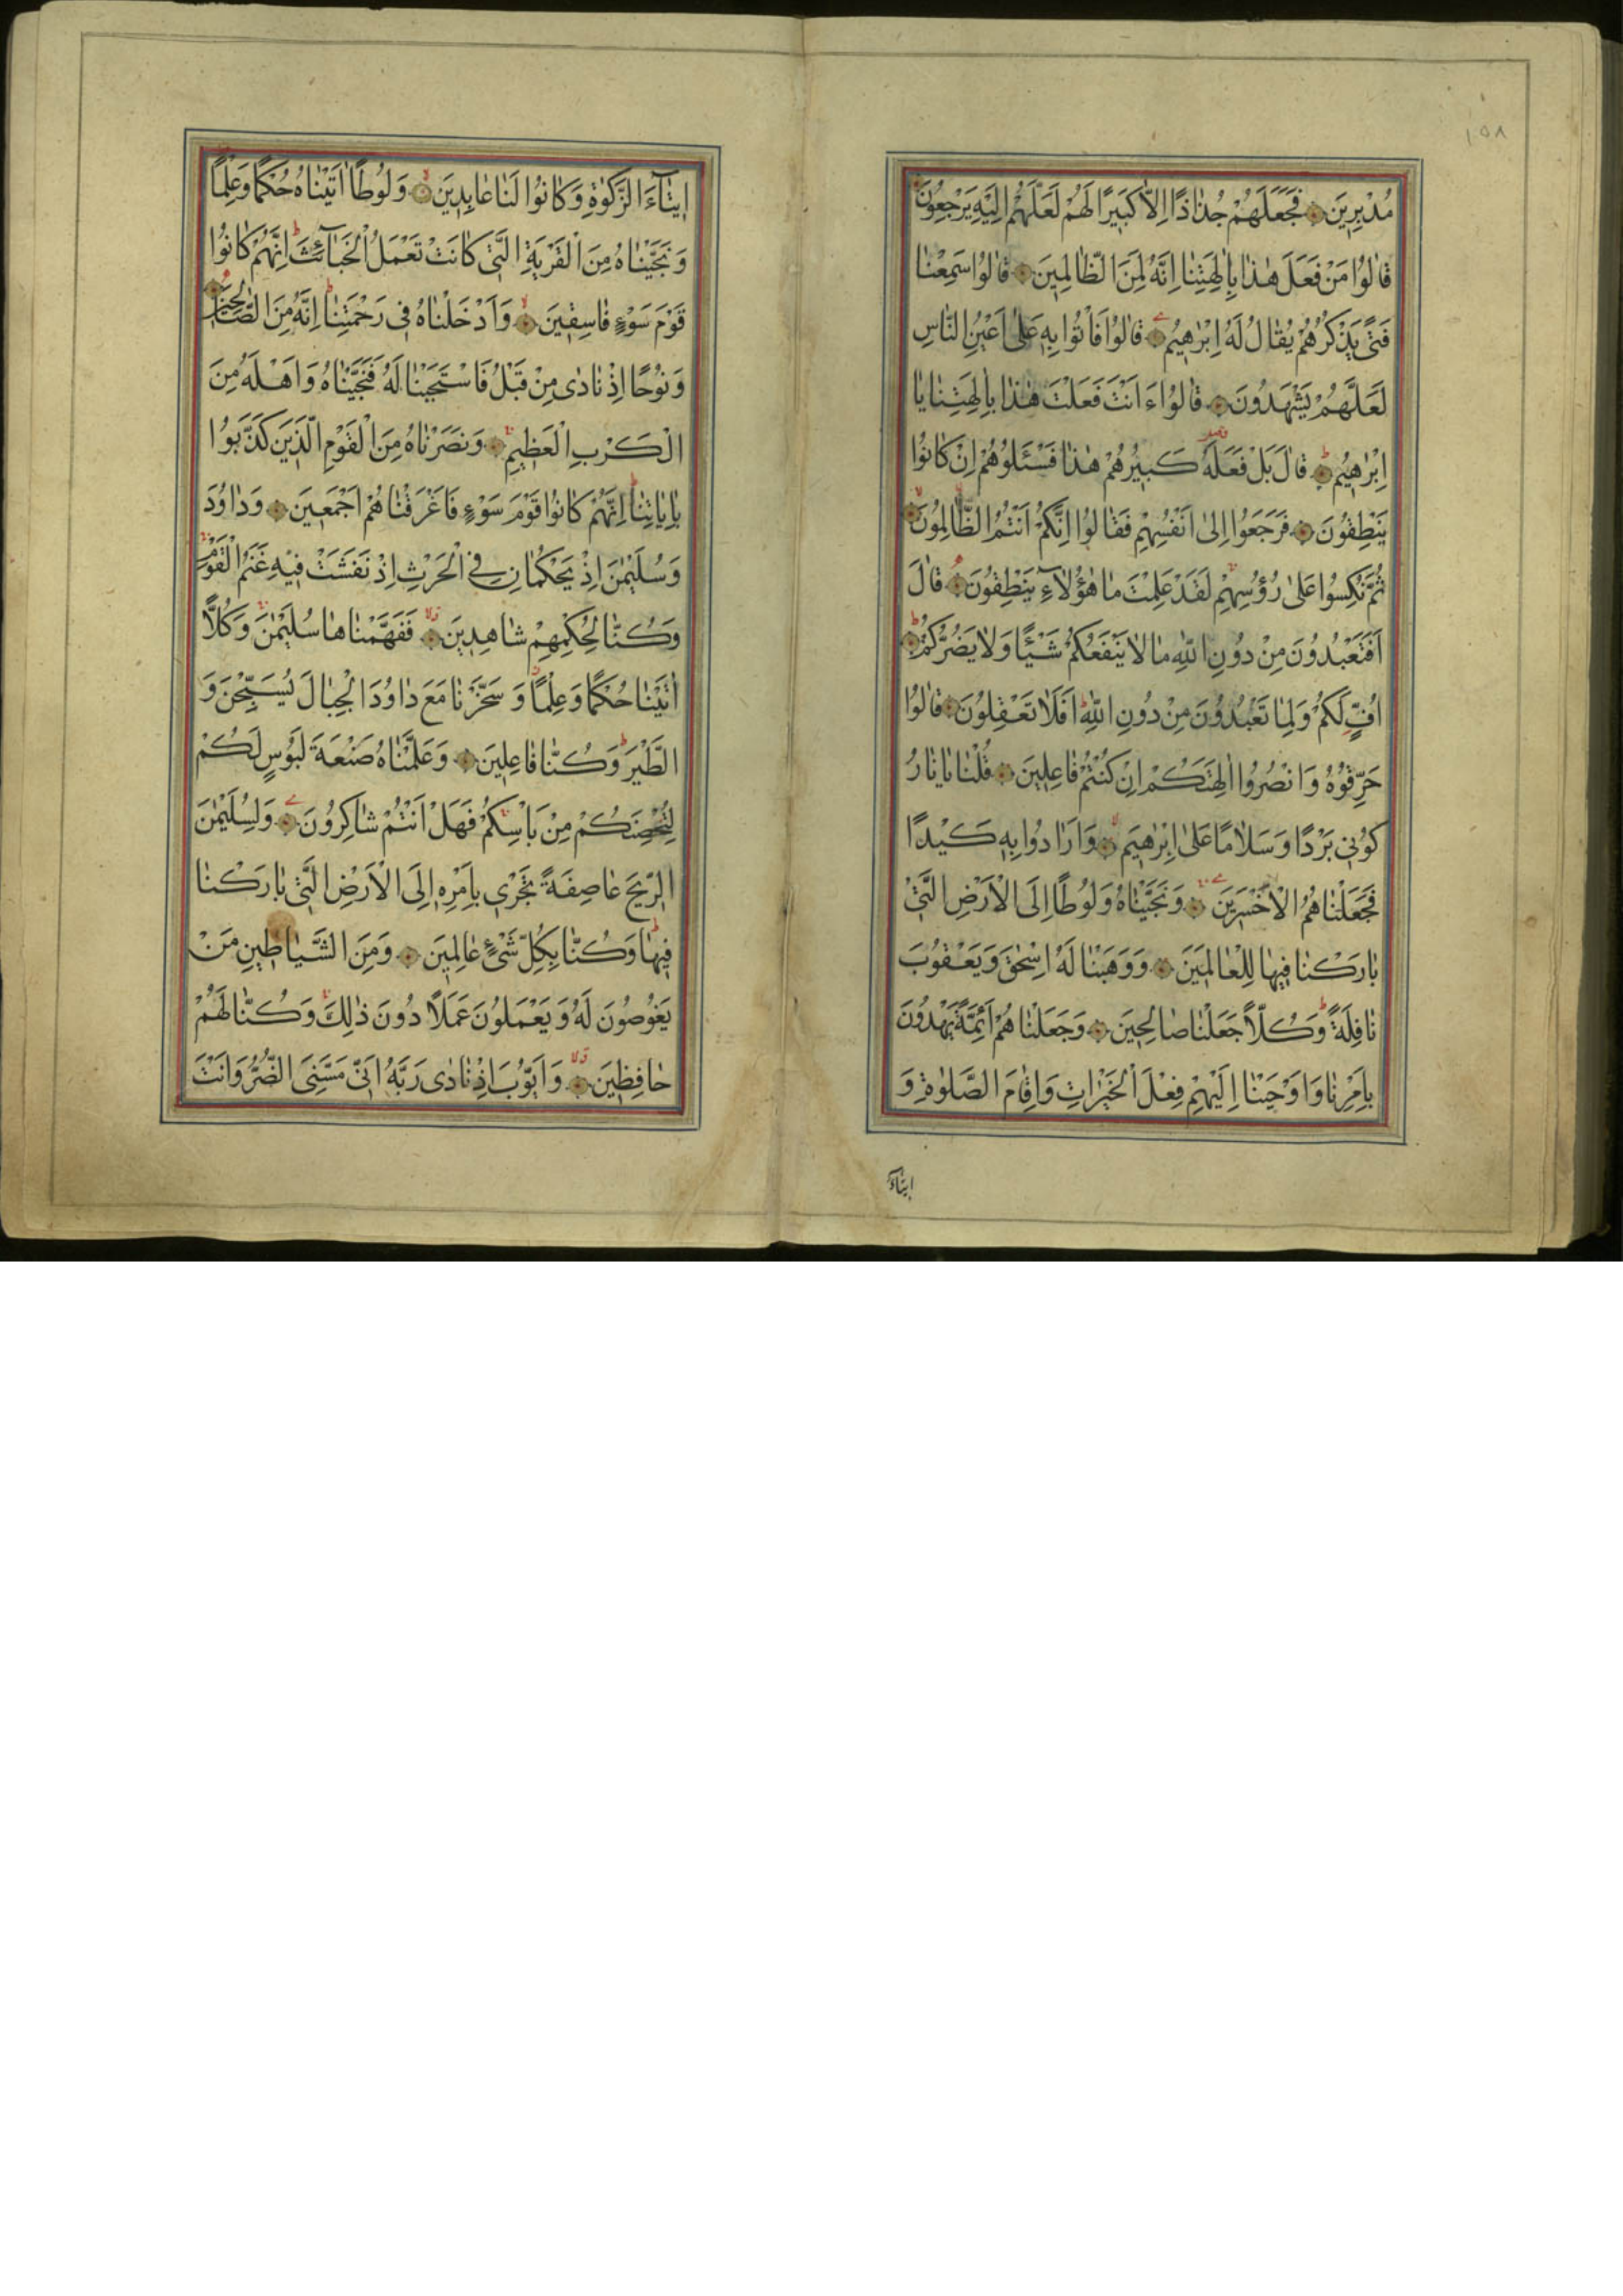 ١٥٨
مُدْبِرِينَ فَجَعَلَهُمْ جُذَاذًا اِلَّا كَبِيرًا لَهُمْ لَعَلَّهُمْ اِلَيْهِ يَرْجِعُونَ
قَالُوا مَنْ فَعَلَ هٰذَا بِاٰلِهَتِنَا اِنَّهُ لَمِنَ الظَّالِمِينَ قَالُوا سَمِعْنَا
فَتًى يَذْكُرُهُمْ يُقَالُ لَهُ اِبْرٰهِيمُ قَالُوا فَأْتُوا بِهِ عَلٰى اَعْيُنِ النَّاسِ
لَعَلَّهُمْ يَشْهَدُونَ قَالُوا ءَاَنْتَ فَعَلْتَ هٰذَا بِاٰلِهَتِنَا يَا
اِبْرٰهِيمُ قَالَ بَلْ فَعَلَهُ كَبِيرُهُمْ هٰذَا فَسْئَلُوهُمْ اِنْ كَانُوا
يَنْطِقُونَ فَرَجَعُوا اِلٰى اَنْفُسِهِمْ فَقَالُوا اِنَّكُمْ اَنْتُمُ الظَّالِمُونَ
ثُمَّ نُكِسُوا عَلٰى رُؤُسِهِمْ لَقَدْ عَلِمْتَ مَا هٰؤُلَاءِ يَنْطِقُونَ قَالَ
اَفَتَعْبُدُونَ مِنْ دُونِ اللّٰهِ مَا لَا يَنْفَعُكُمْ شَيْئًا وَلَا يَضُرُّكُمْ
اُفٍّ لَكُمْ وَلِمَا تَعْبُدُونَ مِنْ دُونِ اللّٰهِ اَفَلَا تَعْقِلُونَ قَالُوا
حَرِّقُوهُ وَانْصُرُوا اٰلِهَتَكُمْ اِنْ كُنْتُمْ فَاعِلِينَ قُلْنَا يَا نَارُ
كُونِي بَرْدًا وَسَلَامًا عَلٰى اِبْرٰهِيمَ وَاَرَادُوا بِهِ كَيْدًا
فَجَعَلْنَاهُمُ الْاَخْسَرِينَ وَنَجَّيْنَاهُ وَلُوطًا اِلَى الْاَرْضِ الَّتِي
بَارَكْنَا فِيهَا لِلْعَالَمِينَ وَوَهَبْنَا لَهُ اِسْحٰقَ وَيَعْقُوبَ
نَافِلَةً وَكُلًّا جَعَلْنَا صَالِحِينَ وَجَعَلْنَاهُمْ اَئِمَّةً يَهْدُونَ
بِاَمْرِنَا وَاَوْحَيْنَا اِلَيْهِمْ فِعْلَ الْخَيْرَاتِ وَاِقَامَ الصَّلٰوةِ وَ
ايتاء
اِيتَاءَ الزَّكٰوةِ وَكَانُوا لَنَا عَابِدِينَ وَلُوطًا اٰتَيْنَاهُ حُكْمًا وَعِلْمًا
وَنَجَّيْنَاهُ مِنَ الْقَرْيَةِ الَّتِي كَانَتْ تَعْمَلُ الْخَبَائِثَ اِنَّهُمْ كَانُوا
قَوْمَ سَوْءٍ فَاسِقِينَ وَاَدْخَلْنَاهُ فِي رَحْمَتِنَا اِنَّهُ مِنَ الصَّالِحِينَ
وَنُوحًا اِذْ نَادٰى مِنْ قَبْلُ فَاسْتَجَبْنَا لَهُ فَنَجَّيْنَاهُ وَاَهْلَهُ مِنَ
الْكَرْبِ الْعَظِيمِ وَنَصَرْنَاهُ مِنَ الْقَوْمِ الَّذِينَ كَذَّبُوا
بِاٰيَاتِنَا اِنَّهُمْ كَانُوا قَوْمَ سَوْءٍ فَاَغْرَقْنَاهُمْ اَجْمَعِينَ وَدَاوُدَ
وَسُلَيْمٰنَ اِذْ يَحْكُمَانِ فِي الْحَرْثِ اِذْ نَفَشَتْ فِيهِ غَنَمُ الْقَوْمِ
وَكُنَّا لِحُكْمِهِمْ شَاهِدِينَ فَفَهَّمْنَاهَا سُلَيْمٰنَ وَكُلًّا
اٰتَيْنَا حُكْمًا وَعِلْمًا وَسَخَّرْنَا مَعَ دَاوُدَ الْجِبَالَ يُسَبِّحْنَ وَ
الطَّيْرَ وَكُنَّا فَاعِلِينَ وَعَلَّمْنَاهُ صَنْعَةَ لَبُوسٍ لَكُمْ
لِتُحْصِنَكُمْ مِنْ بَأْسِكُمْ فَهَلْ اَنْتُمْ شَاكِرُونَ وَلِسُلَيْمٰنَ
الرِّيحَ عَاصِفَةً تَجْرِي بِاَمْرِهِ اِلَى الْاَرْضِ الَّتِي بَارَكْنَا
فِيهَا وَكُنَّا بِكُلِّ شَيْءٍ عَالِمِينَ وَمِنَ الشَّيَاطِينِ مَنْ
يَغُوصُونَ لَهُ وَيَعْمَلُونَ عَمَلًا دُونَ ذٰلِكَ وَكُنَّا لَهُمْ
حَافِظِينَ وَاَيُّوبَ اِذْ نَادٰى رَبَّهُ اَنِّي مَسَّنِيَ الضُّرُّ وَاَنْتَ